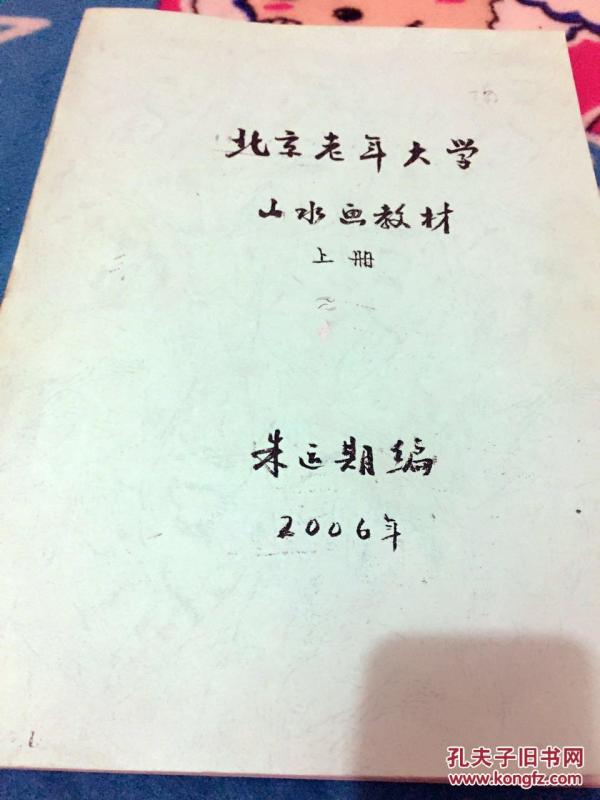 北京老年大学
山水画教材
上册
朱运期编
2006年
孔夫子旧书网
www.kongfz.com